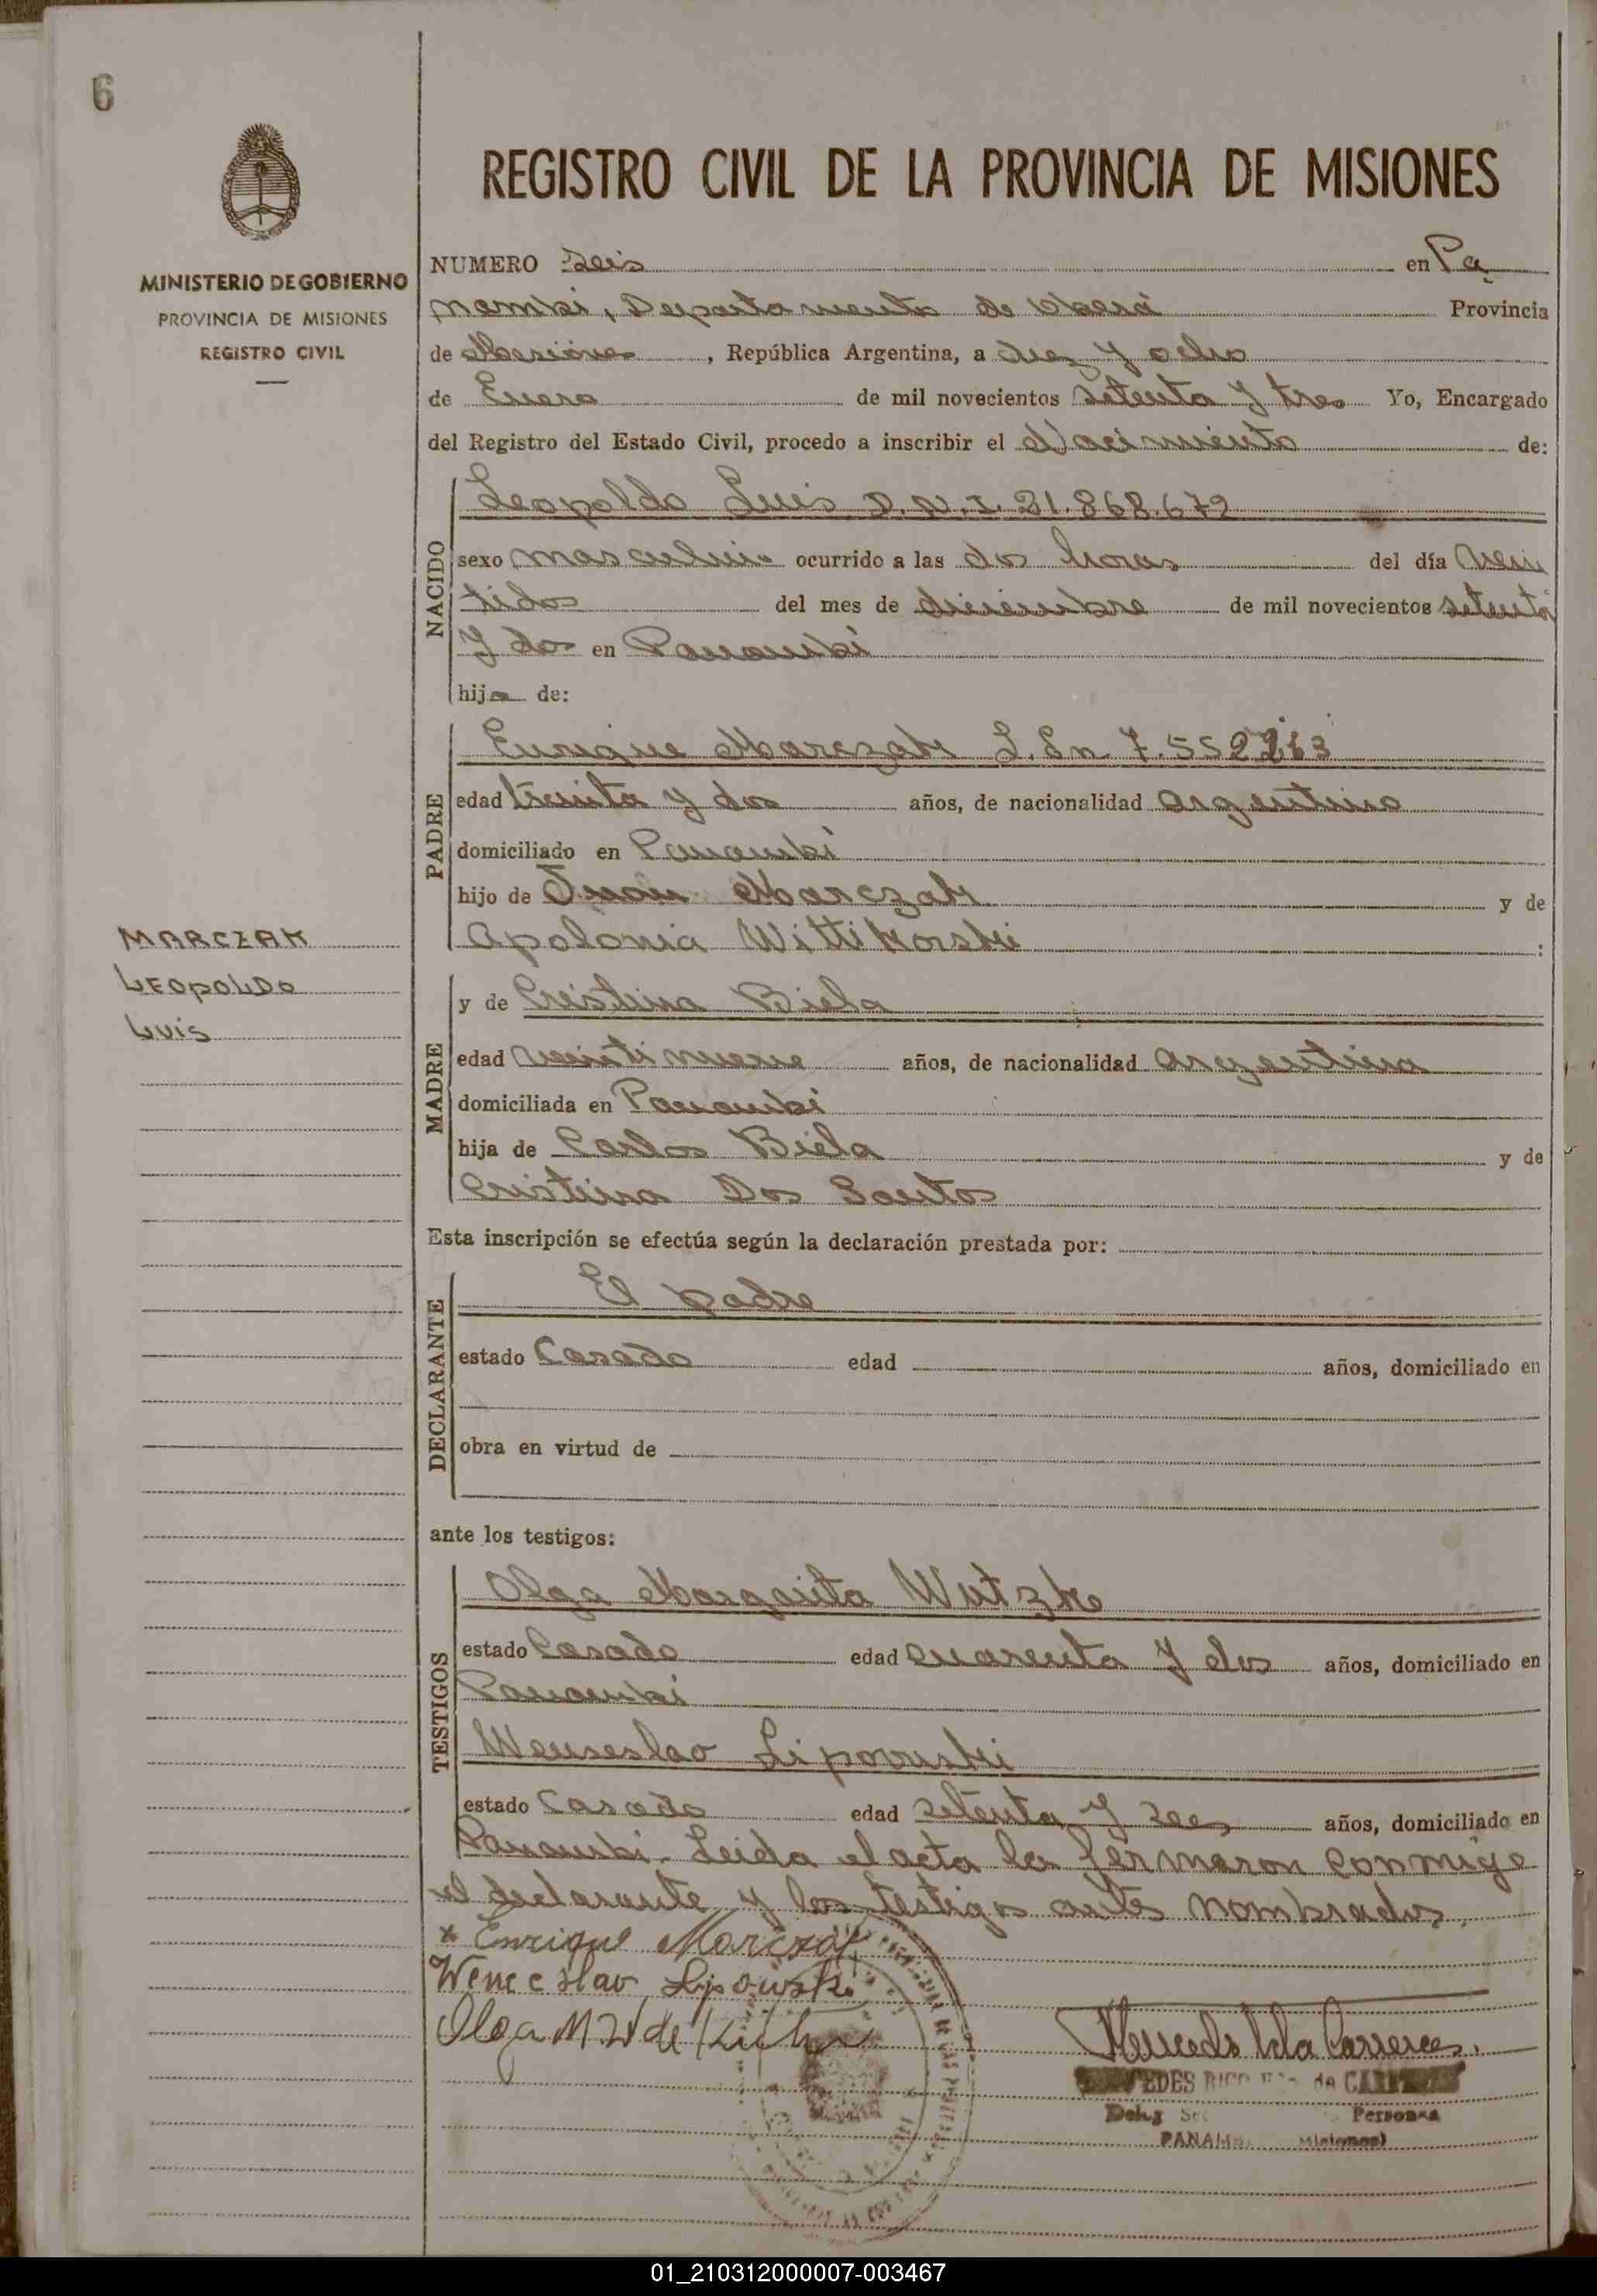 6
MINISTERIO DE GOBIERNO
PROVINCIA DE MISIONES
REGISTRO CIVIL
MARCZAK
LEOPOLDO
LUIS
REGISTRO CIVIL DE LA PROVINCIA DE MISIONES
NUMERO Seis en Pa
nambi, Departamento de Oberá Provincia
de Misiones, República Argentina, a diez y ocho
de Enero de mil novecientos setenta y tres Yo, Encargado
del Registro del Estado Civil, procedo a inscribir el Nacimiento de:
NACIDO
Leopoldo Luis D.N.I. 21.868.672
sexo masculino ocurrido a las dos horas del día vein
tidos del mes de diciembre de mil novecientos setenta
y dos en Panambi
hijo de:
PADRE
Enrique Marczak L.En 7.552
edad treinta y dos años, de nacionalidad argentino
domiciliado en Panambi
hijo de Juan Marczak y de
Apolonia Wittikorski :
MADRE
y de Cristina Biela
edad veinti nueve años, de nacionalidad argentina
domiciliada en Panambi
hija de Carlos Biela y de
Cristina Dos Santos
Esta inscripción se efectúa según la declaración prestada por:
DECLARANTE
El padre
estado Casado edad años, domiciliado en
obra en virtud de
ante los testigos:
TESTIGOS
Olga Margarita Wutzke
estado Casado edad cuarenta y dos años, domiciliado en
Panambi
Wenseslao Lipowski
estado Casado edad setenta y años, domiciliado en
Panambi. Leida el acta la firmaron conmigo
el declarante y los testigos antes nombrados.
* Enrique Marczak
Wenceslao Lipowski
Olga M W de
Mercedes
EDES RICO de
Deleg Personas
PANAMBI Misiones)
01_210312000007-003467